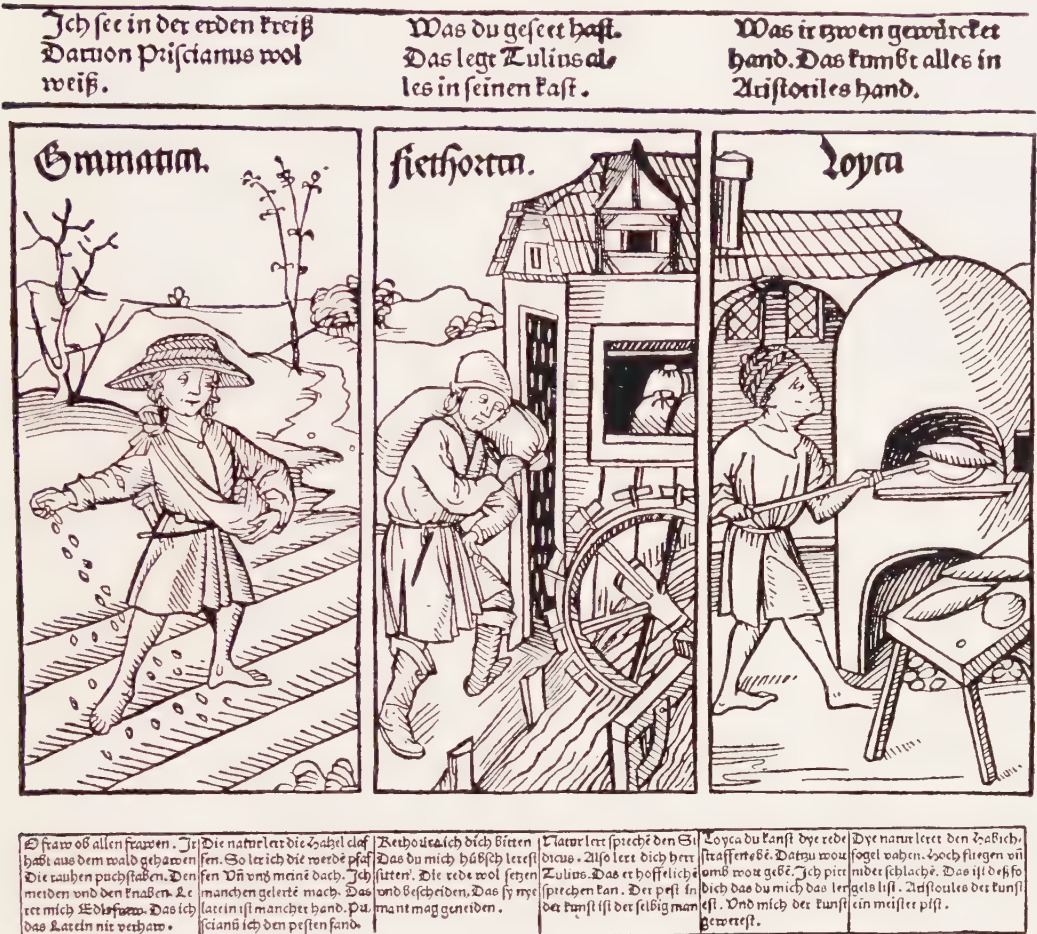 Ich see in der erden kreiß
Daruon Priscianus wol
weiß.
Was du geseet hast.
Das legt Tulius al-
les in seinen kast.
Was ir tzwen gewürcket
hand. Das kumbt alles in
Aristotiles hand.
Gramatica.
Rethorica.
Loyca
O fraw ob allen frawen. Ir
habt aus dem wald gehawen
Die rauhen puchstaben. Den
meiden vnd den knaben. Le
ret mich Edlefraw. Das ich
das Latein nit verhaw.
Die natur lert die Hatzel claf
fen. So ler ich die werdē pfaf
fen Vñ vnd meinē dach. Ich
manchen gelertē mach. Das
latein ist mancher hand. Pri
scianū ich den pesten fand.
Rethorica ich dich bitten
Das du mich hübsch lerest
sitten. Die rede wol setzen
vnd bescheiden. Das sy nye
mant mag geneiden.
Natur lert sprechē den Si
dicus. Also lere dich herr
Tulius. Das er hoffelichē
sprechen kan. Der pest in
der kunst ist der selbig man
Loyca du kanst dye rede
straffen ebē. Dartzu wort
vmb wort gebē. Ich pite
dich das du mich das ler
est. Vnd mich der kunst
gewerest.
Dye natur leret den Habich.
fogel vahen. Hoch fliegen vñ
nider schlahē. Das ist deß fo
gels list. Aristoules der kunst
ein meister pist.